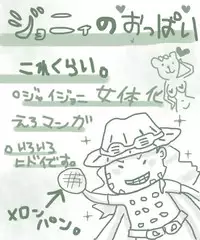 ジョニィのおっぱい
これくらい。
ジャイジョニ 女体化
えろマンガ
いろいろ
ヒドイです。
メロン
パン。